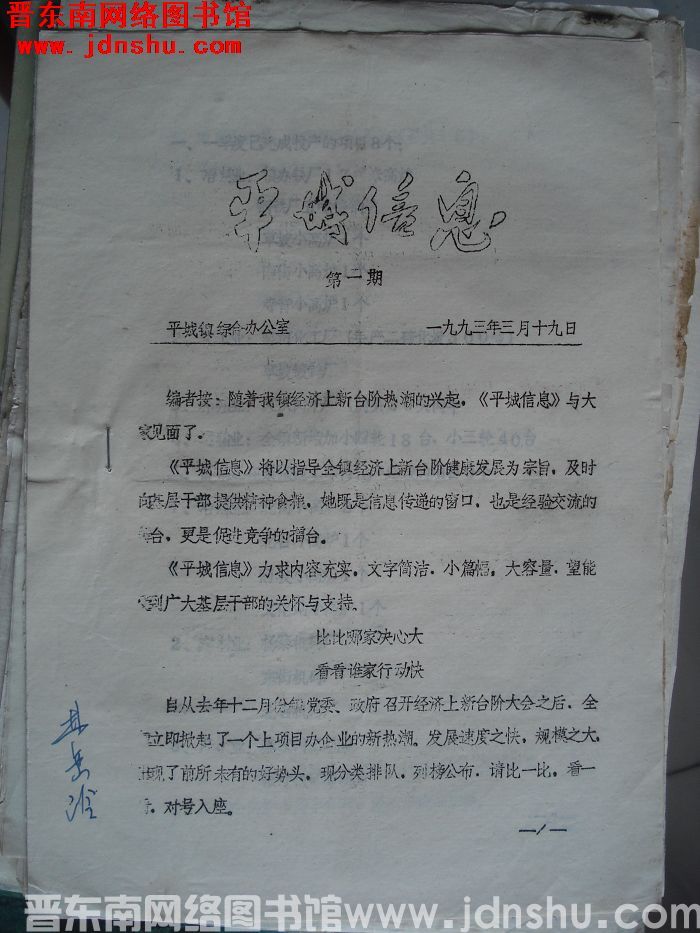 晋东南网络图书馆
www.jdnshu.com
平城信息
第一期
平城镇综合办公室 一九九三年三月十九日
编者按：随着我镇经济上新台阶热潮的兴起，《平城信息》与大
家见面了。
《平城信息》将以指导全镇经济上新台阶健康发展为宗旨，及时
向基层干部提供精神食粮，她既是信息传递的窗口，也是经验交流的
台，更是促进竞争的擂台。
《平城信息》力求内容充实，文字简洁，小篇幅，大容量，望能
得到广大基层干部的关怀与支持。
比比哪家决心大
看看谁家行动快
自从去年十二月份镇党委、政府召开经济上新台阶大会之后，全
立即掀起了一个上项目办企业的新热潮。发展速度之快，规模之大，
出现了前所未有的好势头，现分类排队，列榜公布，请比一比，看一
看，对号入座。
—1—
晋东南网络图书馆www.jdnshu.com